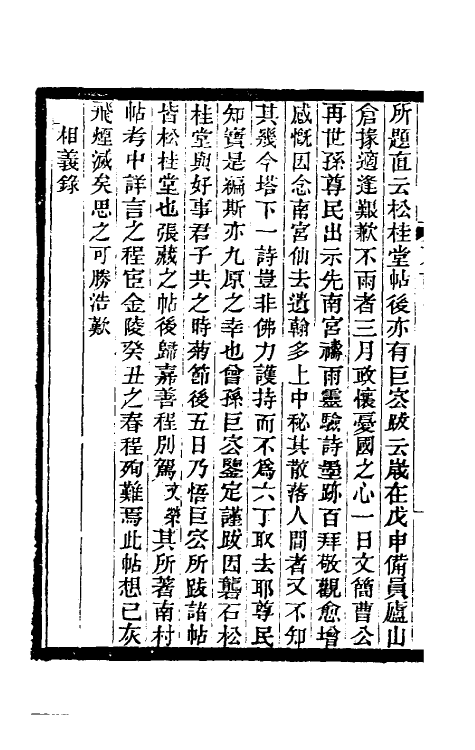 所題直云松桂堂帖後亦有巨容跋云歲在戊申備員廬山
倉據適逢艱歉不雨者三月政懷憂國之心一日文簡曹公
再世孫尊民出示先南宮禱雨靈驗詩墨跡百拜敬觀愈增
感慨因念南宮仙去遺翰多上中秘其散落人間者又不知
其幾今塔下一詩豈非佛力護持而不爲六丁取去耶尊民
知寶是編斯亦九原之幸也曾孫巨容鑒定謹跋因礱石松
桂堂與好事君子共之時菊節後五日乃悟巨容所跋諸帖
皆松桂堂也張藏之帖後歸嘉善程別駕文榮其所著南村
帖考中詳言之程宦金陵癸丑之春程殉難焉此帖想已灰
飛煙滅矣思之可勝浩歎
相義錄